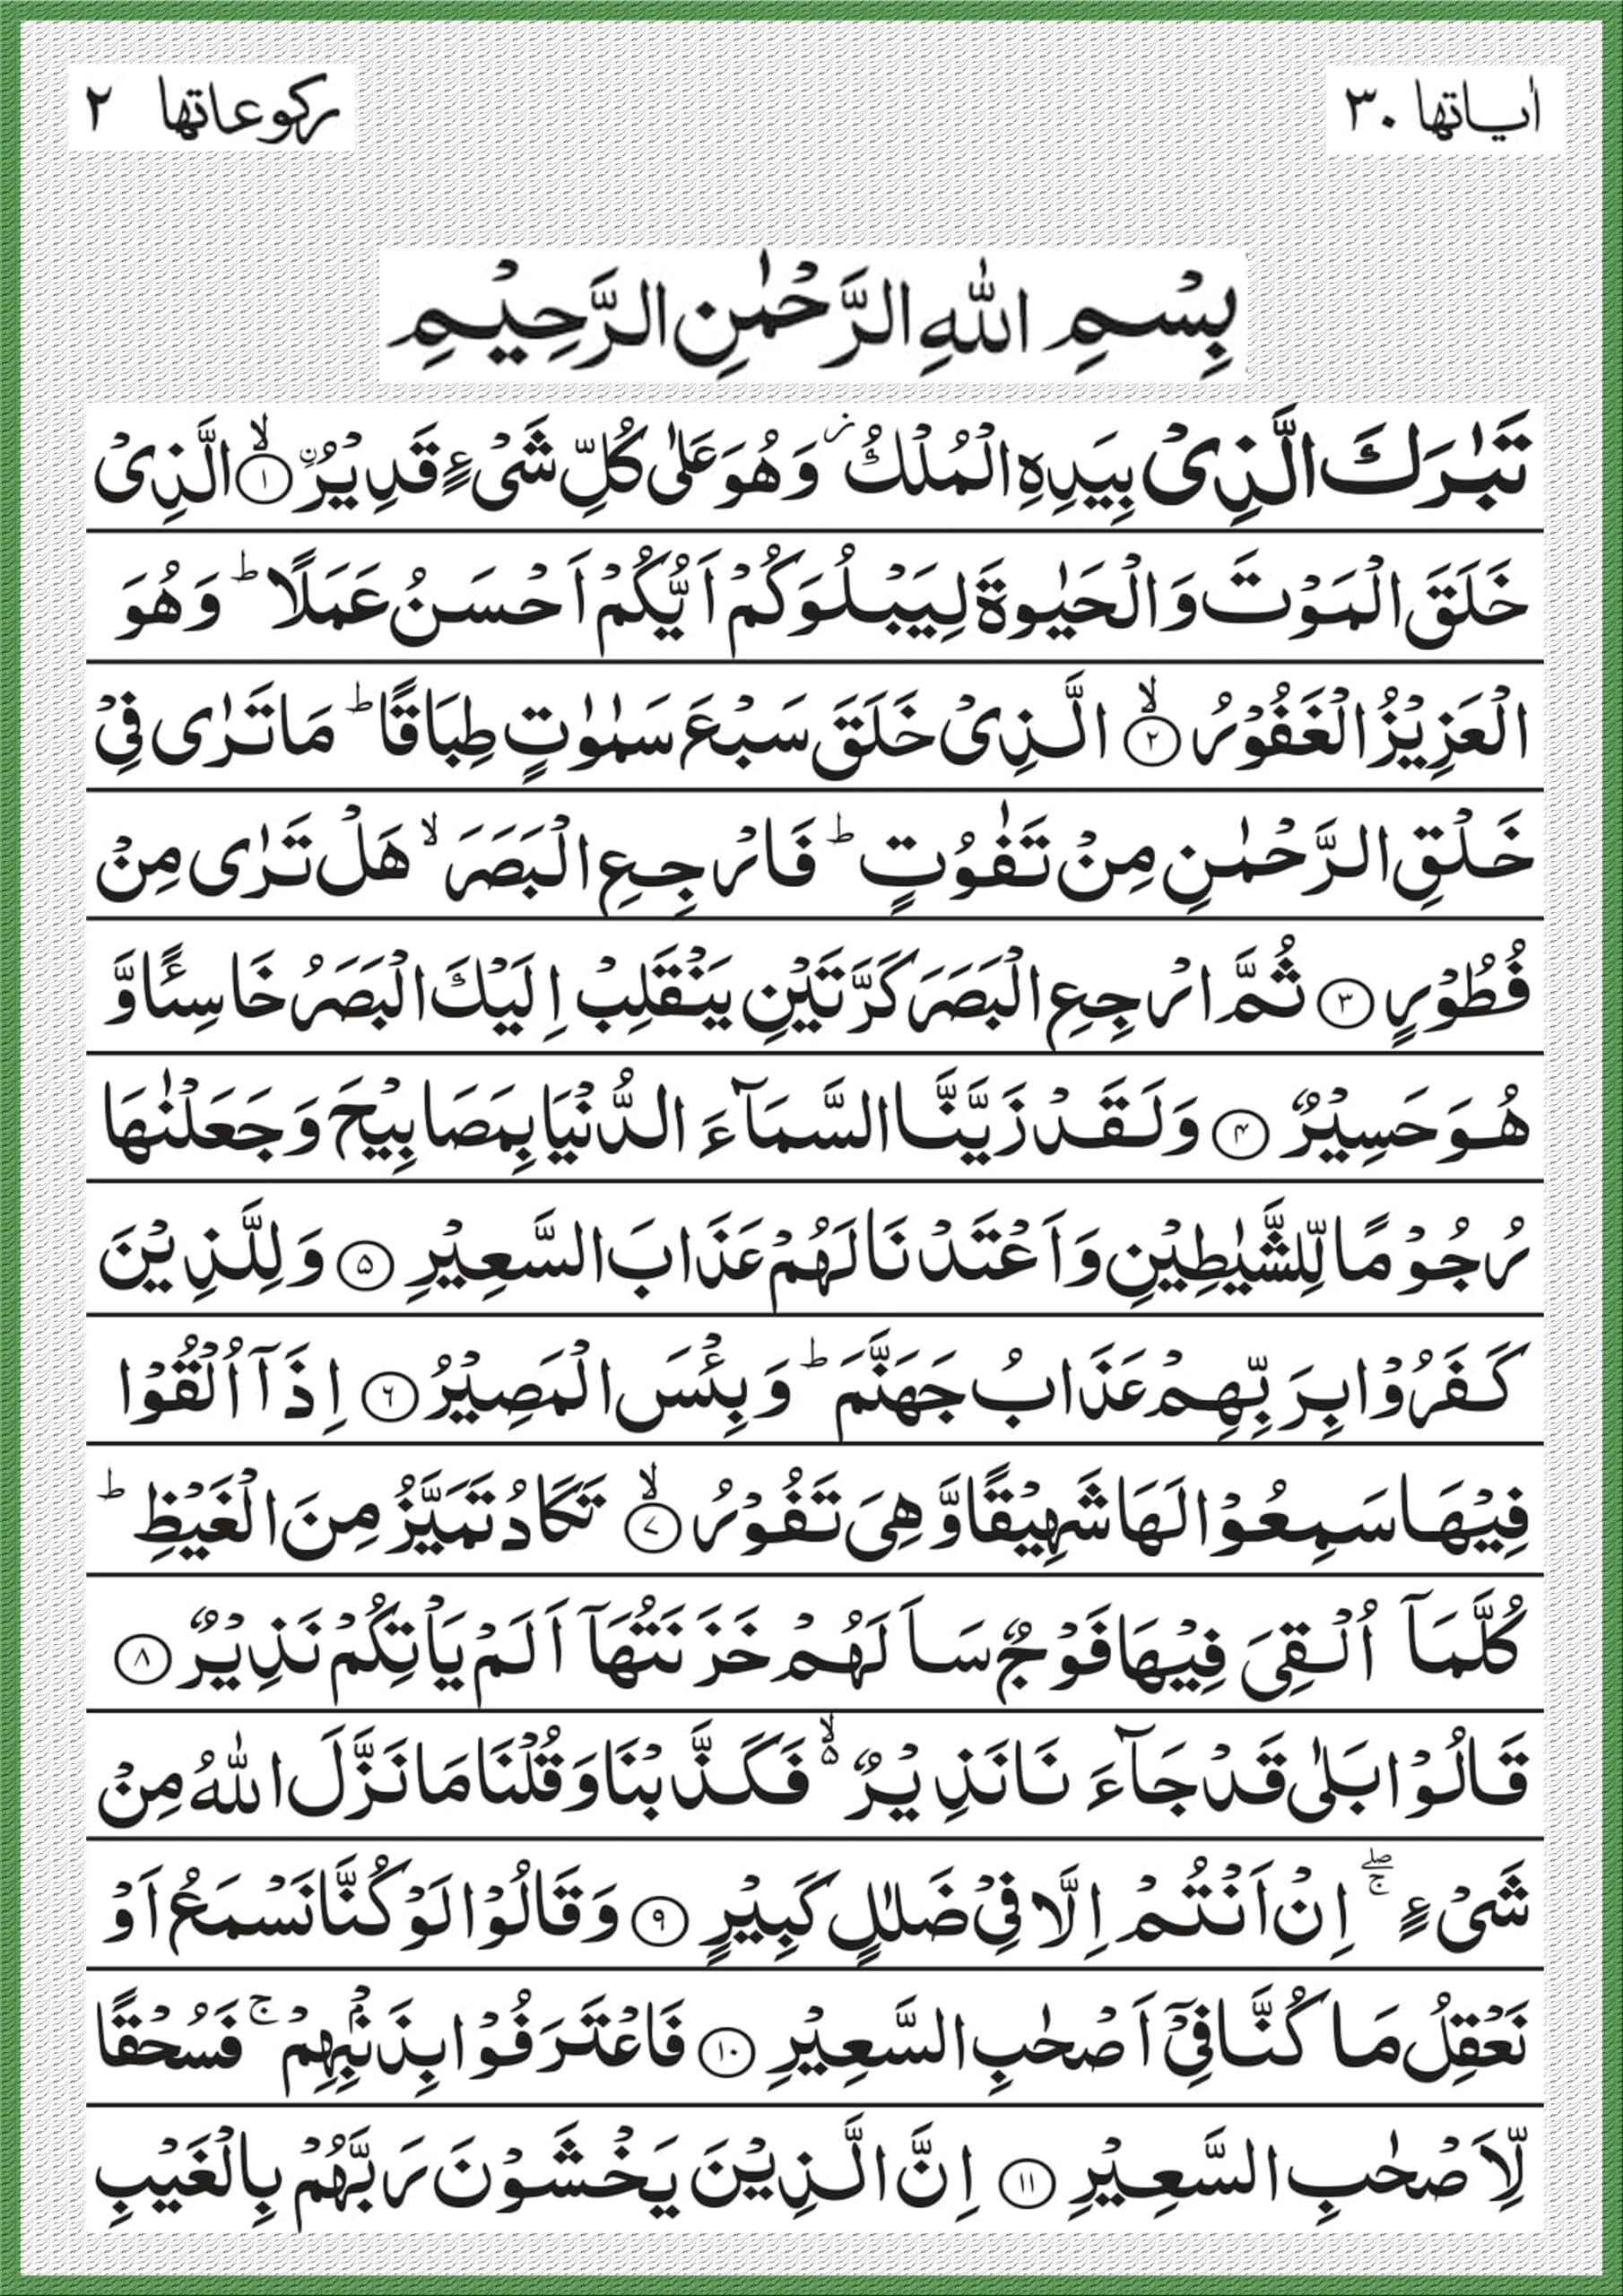 اٰياتها ۳۰
ركوعاتها ۲
بِسْمِ اللّٰهِ الرَّحْمٰنِ الرَّحِيْمِ
تَبٰرَكَ الَّذِىْ بِيَدِهِ الْمُلْكُ ز وَهُوَ عَلٰى كُلِّ شَىْءٍ قَدِيْرُ ۨ ۙ‏﴿۱﴾ الَّذِىْ
خَلَقَ الْمَوْتَ وَالْحَيٰوةَ لِيَبْلُوَكُمْ اَيُّكُمْ اَحْسَنُ عَمَلًا ؕ وَهُوَ
الْعَزِيْزُ الْغَفُوْرُ ۙ‏﴿۲﴾ الَّذِىْ خَلَقَ سَبْعَ سَمٰوٰتٍ طِبَاقًا ؕ مَا تَرٰى فِىْ
خَلْقِ الرَّحْمٰنِ مِنْ تَفٰوُتٍ ؕ فَارْجِعِ الْبَصَرَ ۙ هَلْ تَرٰى مِنْ
فُطُوْرٍ ﴿۳﴾ ثُمَّ ارْجِعِ الْبَصَرَ كَرَّتَيْنِ يَنْقَلِبْ اِلَيْكَ الْبَصَرُ خَاسِئًا وَّ
هُوَ حَسِيْرٌ ﴿۴﴾ وَلَقَدْ زَيَّنَّا السَّمَآءَ الدُّنْيَا بِمَصَابِيْحَ وَجَعَلْنٰهَا
رُجُوْمًا لِّلشَّيٰطِيْنِ وَاَعْتَدْنَا لَهُمْ عَذَابَ السَّعِيْرِ ﴿۵﴾ وَلِلَّذِيْنَ
كَفَرُوْا بِرَبِّهِمْ عَذَابُ جَهَنَّمَ ؕ وَبِئْسَ الْمَصِيْرُ ﴿۶﴾ اِذَآ اُلْقُوْا
فِيْهَا سَمِعُوْا لَهَا شَهِيْقًا وَّهِىَ تَفُوْرُ ۙ‏﴿۷﴾ تَكَادُ تَمَيَّزُ مِنَ الْغَيْظِ ؕ
كُلَّمَآ اُلْقِىَ فِيْهَا فَوْجٌ سَاَلَهُمْ خَزَنَتُهَآ اَلَمْ يَاْتِكُمْ نَذِيْرٌ ﴿۸﴾
قَالُوْا بَلٰى قَدْ جَآءَ نَا نَذِيْرٌ ۙ۬ فَكَذَّبْنَا وَقُلْنَا مَا نَزَّلَ اللّٰهُ مِنْ
شَىْءٍ ۖۚ اِنْ اَنْتُمْ اِلَّا فِىْ ضَلٰلٍ كَبِيْرٍ ﴿۹﴾ وَقَالُوْا لَوْ كُنَّا نَسْمَعُ اَوْ
نَعْقِلُ مَا كُنَّا فِىْٓ اَصْحٰبِ السَّعِيْرِ ﴿۱۰﴾ فَاعْتَرَفُوْا بِذَنْۢبِهِمْ ۚ فَسُحْقًا
لِّاَصْحٰبِ السَّعِيْرِ ﴿۱۱﴾ اِنَّ الَّذِيْنَ يَخْشَوْنَ رَبَّهُمْ بِالْغَيْبِ